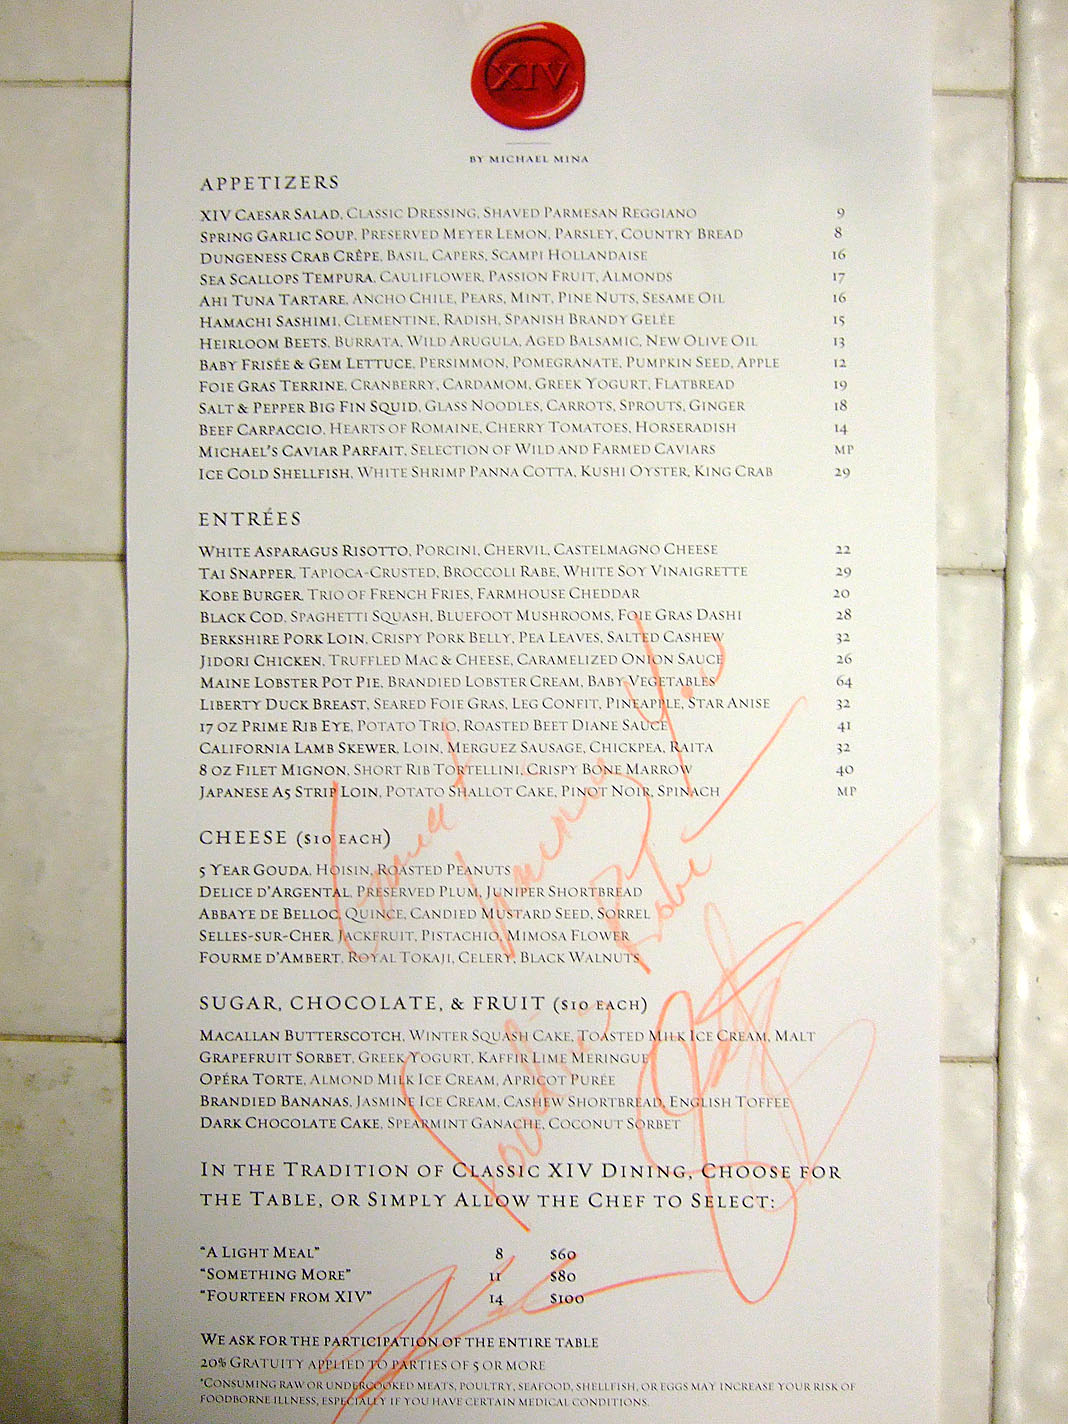 XIV
BY MICHAEL MINA
APPETIZERS
XIV CAESAR SALAD, CLASSIC DRESSING, SHAVED PARMESAN REGGIANO 9
SPRING GARLIC SOUP, PRESERVED MEYER LEMON, PARSLEY, COUNTRY BREAD 8
DUNGENESS CRAB CRÊPE, BASIL, CAPERS, SCAMPI HOLLANDAISE 16
SEA SCALLOPS TEMPURA, CAULIFLOWER, PASSION FRUIT, ALMONDS 17
AHI TUNA TARTARE, ANCHO CHILE, PEARS, MINT, PINE NUTS, SESAME OIL 16
HAMACHI SASHIMI, CLEMENTINE, RADISH, SPANISH BRANDY GELÉE 15
HEIRLOOM BEETS, BURRATA, WILD ARUGULA, AGED BALSAMIC, NEW OLIVE OIL 13
BABY FRISÉE & GEM LETTUCE, PERSIMMON, POMEGRANATE, PUMPKIN SEED, APPLE 12
FOIE GRAS TERRINE, CRANBERRY, CARDAMOM, GREEK YOGURT, FLATBREAD 19
SALT & PEPPER BIG FIN SQUID, GLASS NOODLES, CARROTS, SPROUTS, GINGER 18
BEEF CARPACCIO, HEARTS OF ROMAINE, CHERRY TOMATOES, HORSERADISH 14
MICHAEL'S CAVIAR PARFAIT, SELECTION OF WILD AND FARMED CAVIARS MP
ICE COLD SHELLFISH, WHITE SHRIMP PANNA COTTA, KUSHI OYSTER, KING CRAB 29
ENTRÉES
WHITE ASPARAGUS RISOTTO, PORCINI, CHERVIL, CASTELMAGNO CHEESE 22
TAI SNAPPER, TAPIOCA-CRUSTED, BROCCOLI RABE, WHITE SOY VINAIGRETTE 29
KOBE BURGER, TRIO OF FRENCH FRIES, FARMHOUSE CHEDDAR 20
BLACK COD, SPAGHETTI SQUASH, BLUEFOOT MUSHROOMS, FOIE GRAS DASHI 28
BERKSHIRE PORK LOIN, CRISPY PORK BELLY, PEA LEAVES, SALTED CASHEW 32
JIDORI CHICKEN, TRUFFLED MAC & CHEESE, CARAMELIZED ONION SAUCE 26
MAINE LOBSTER POT PIE, BRANDIED LOBSTER CREAM, BABY VEGETABLES 64
LIBERTY DUCK BREAST, SEARED FOIE GRAS, LEG CONFIT, PINEAPPLE, STAR ANISE 32
17 OZ PRIME RIB EYE, POTATO TRIO, ROASTED BEET DIANE SAUCE 41
CALIFORNIA LAMB SKEWER, LOIN, MERGUEZ SAUSAGE, CHICKPEA, RAITA 32
8 OZ FILET MIGNON, SHORT RIB TORTELLINI, CRISPY BONE MARROW 40
JAPANESE A5 STRIP LOIN, POTATO SHALLOT CAKE, PINOT NOIR, SPINACH MP
CHEESE ($10 EACH)
5 YEAR GOUDA, HOISIN, ROASTED PEANUTS
DELICE D'ARGENTAL, PRESERVED PLUM, JUNIPER SHORTBREAD
ABBAYE DE BELLOC, QUINCE, CANDIED MUSTARD SEED, SORREL
SELLES-SUR-CHER, JACKFRUIT, PISTACHIO, MIMOSA FLOWER
FOURME D'AMBERT, ROYAL TOKAJI, CELERY, BLACK WALNUTS
SUGAR, CHOCOLATE, & FRUIT ($10 EACH)
MACALLAN BUTTERSCOTCH, WINTER SQUASH CAKE, TOASTED MILK ICE CREAM, MALT
GRAPEFRUIT SORBET, GREEK YOGURT, KAFFIR LIME MERINGUE
OPÉRA TORTE, ALMOND MILK ICE CREAM, APRICOT PURÉE
BRANDIED BANANAS, JASMINE ICE CREAM, CASHEW SHORTBREAD, ENGLISH TOFFEE
DARK CHOCOLATE CAKE, SPEARMINT GANACHE, COCONUT SORBET
IN THE TRADITION OF CLASSIC XIV DINING, CHOOSE FOR
THE TABLE, OR SIMPLY ALLOW THE CHEF TO SELECT:
"A LIGHT MEAL" 8 $60
"SOMETHING MORE" 11 $80
"FOURTEEN FROM XIV" 14 $100
WE ASK FOR THE PARTICIPATION OF THE ENTIRE TABLE
20% GRATUITY APPLIED TO PARTIES OF 5 OR MORE
*CONSUMING RAW OR UNDERCOOKED MEATS, POULTRY, SEAFOOD, SHELLFISH, OR EGGS MAY INCREASE YOUR RISK OF
FOODBORNE ILLNESS, ESPECIALLY IF YOU HAVE CERTAIN MEDICAL CONDITIONS.